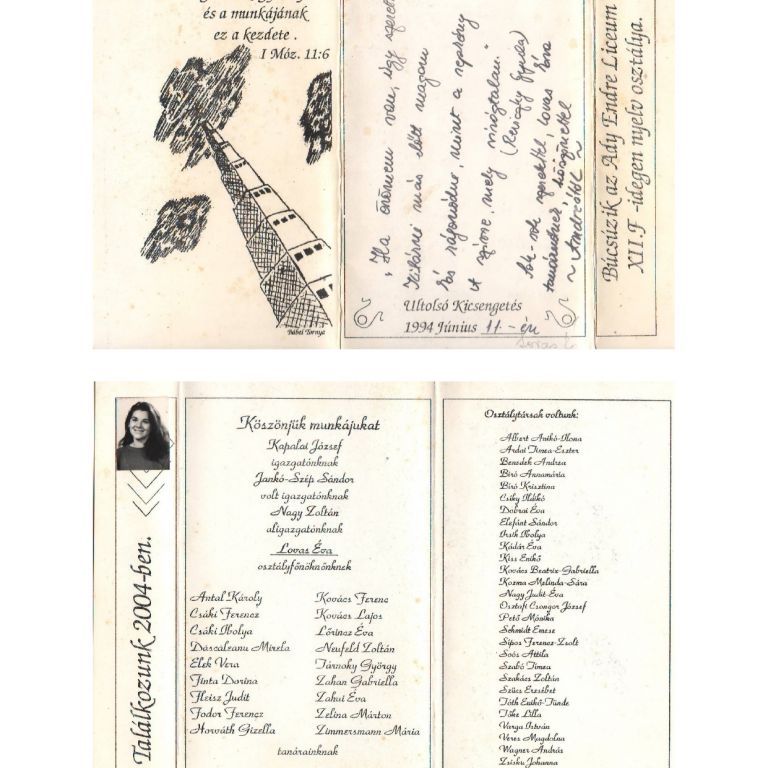 és a munkájának
ez a kezdete.
I Móz. 11:6
Bábel Tornya
"Ha önömem van, úgy szeret
Kitárni más előtt magam
És rágondolni, mint a repkény
szívre, mely virágtalan."
(Reviczky Gyula)
Sok-sok szeretettel, Lovas Éva
tanárnőnek, köszönettel
~ Andreától ~
Ultolsó Kicsengetés
1994 Június 11.-én
Búcsúzik az Ady Endre Líceum
XII.F -idegen nyelv osztálya.
Találkozunk 2004-ben.
Köszönjük munkájukat
Kapalai József
igazgatónknak
Jankó-Szép Sándor
volt igazgatónknak
Nagy Zoltán
aligazgatónknak
Lovas Éva
osztályfőnöknőnknek
Antal Károly
Csáki Ferencz
Csáki Ibolya
Dascaleanu Mirela
Elek Vera
Finta Dorina
Fleisz Judit
Fodor Ferencz
Horváth Gizella
Kovács Ferenc
Kovács Lajos
Lőrincz Éva
Neufeld Zoltán
Tárnoky György
Zahan Gabriella
Zahui Éva
Zelina Márton
Zimmersmann Mária
tanárainknak
Osztálytársak voltunk:
Albert Anikó-Ilona
Ardai Timea-Eszter
Benedek Andrea
Biró Annamária
Biró Krisztina
Csiky Ildikó
Dobrai Éva
Elefánt Sándor
Irsik Ibolya
Kádár Éva
Kiss Enikő
Kovács Beatrix-Gabriella
Kozma Melinda-Sára
Nagy Judit-Éva
Osztafi Csongor József
Pető Mónika
Schmidt Emese
Sipos Ferencz-Zsolt
Soós Attila
Szabó Timea
Szakács Zoltán
Szűcs Erzsébet
Tóth Enikő-Tünde
Tőke Lilla
Varga István
Veres Magdolna
Wagner András
Zsisku Johanna